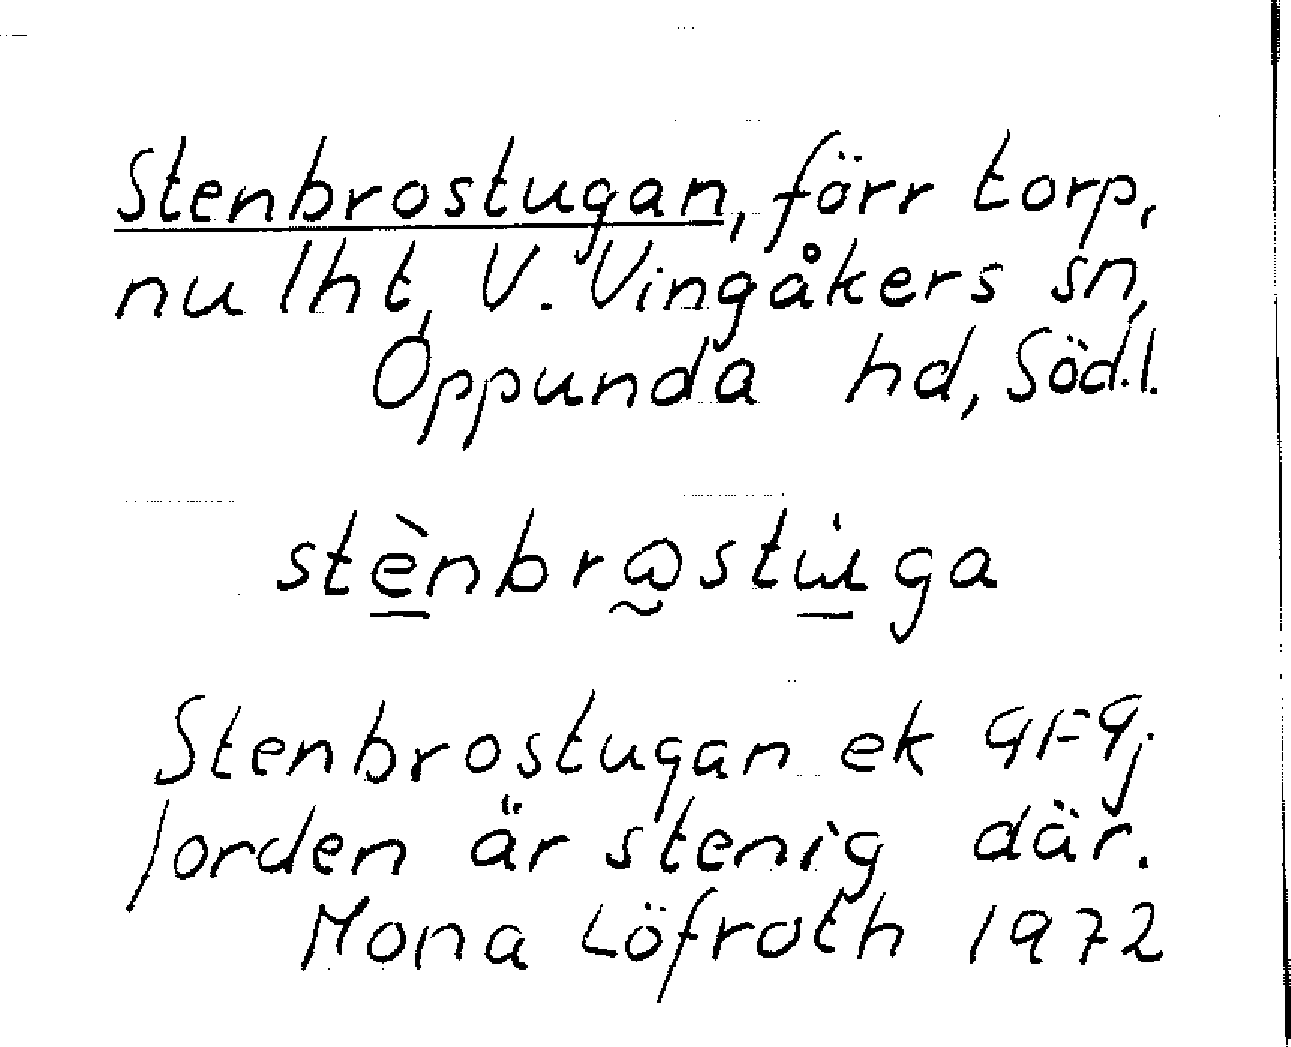 Stenbrostugan, förr torp,
nu lht, V. Vingåkers sn,
Oppunda hd, Södl.
Stenbrostugan ek 9F9j
Jorden är stenig där.
Mona Löfroth 1972